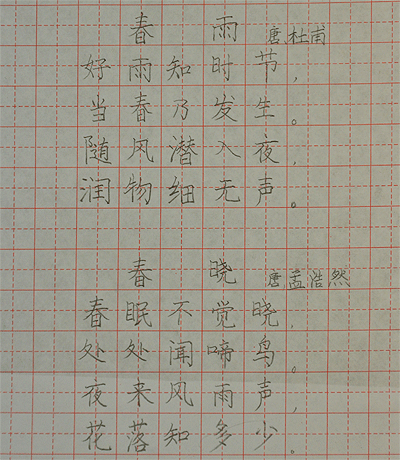 春雨 唐 杜甫
好雨知时节,
当春乃发生。
随风潜入夜,
润物细无声。
春晓 唐 孟浩然
春眠不觉晓,
处处闻啼鸟。
夜来风雨声,
花落知多少。